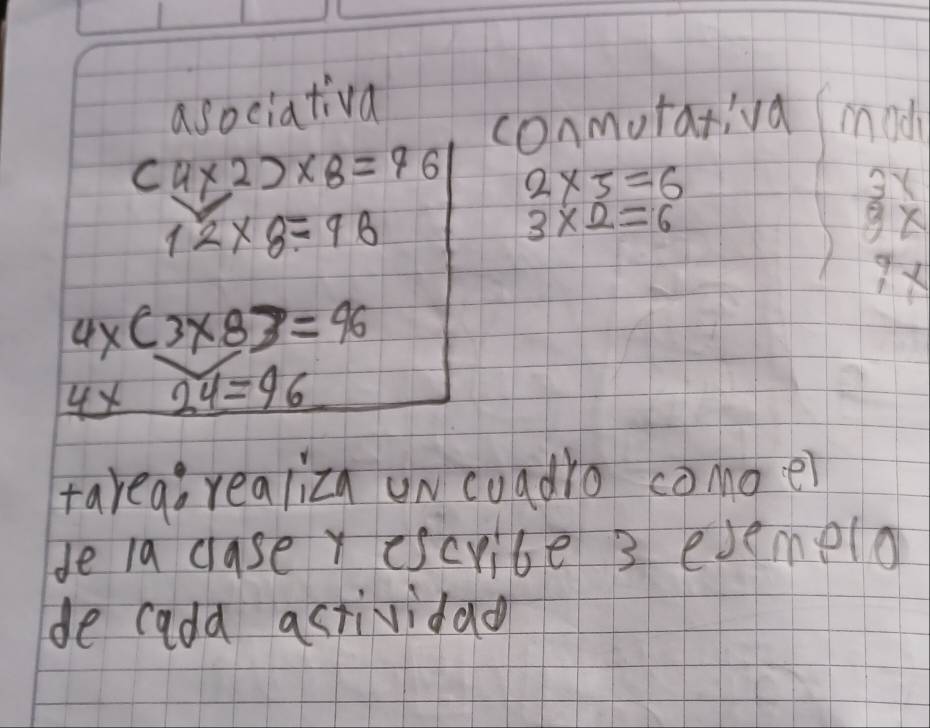 asociativa
(4x2)x8=96
12x8=96
4x(3x8)=96
4x 24=96
conmutativa
2x3=6
3x2=6
modi
3x
9x
tarea: realiza un cuadro como el
de la clase y escribe 3 ejemplo
de cada actividad